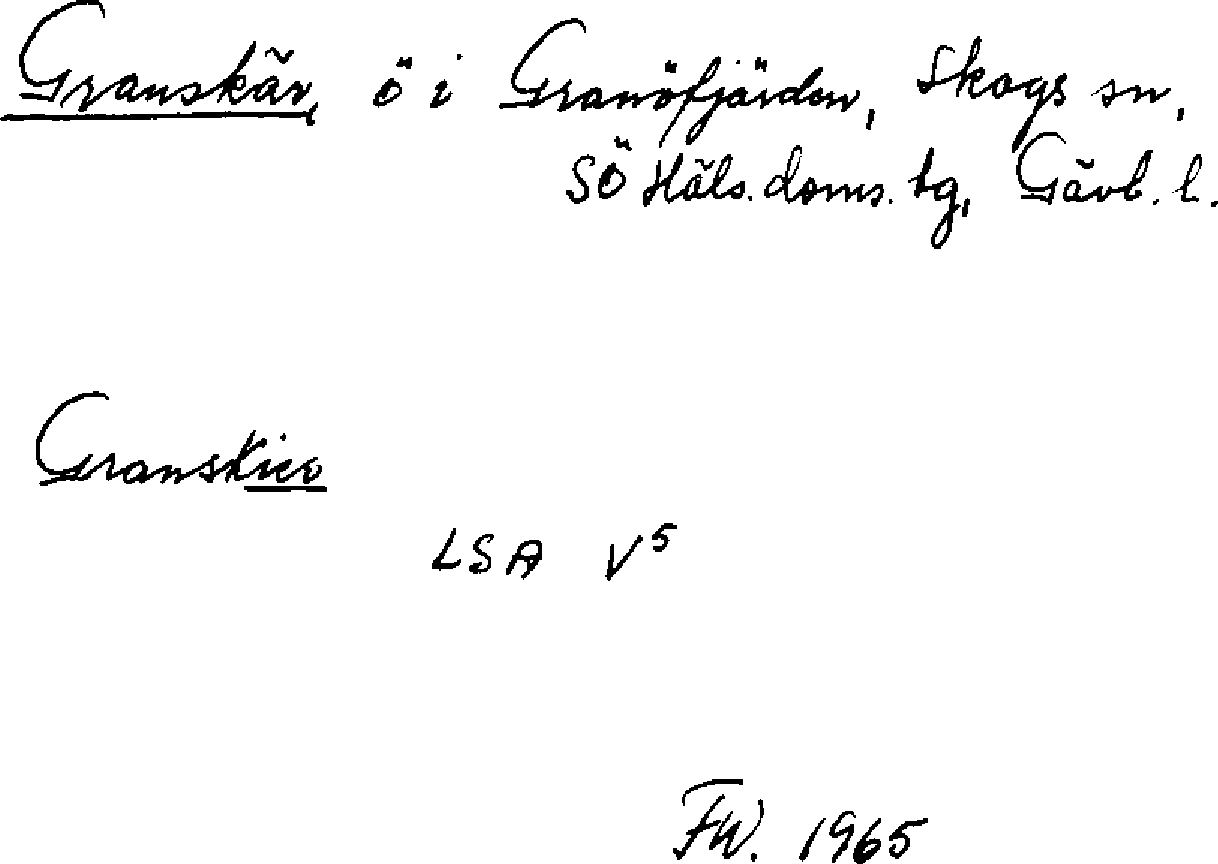 Granskär, ö i Granöfjärden, Skogs sn,
SÖ Häls. doms. tg, Gävl. l.
LSA V⁵
FW. 1965